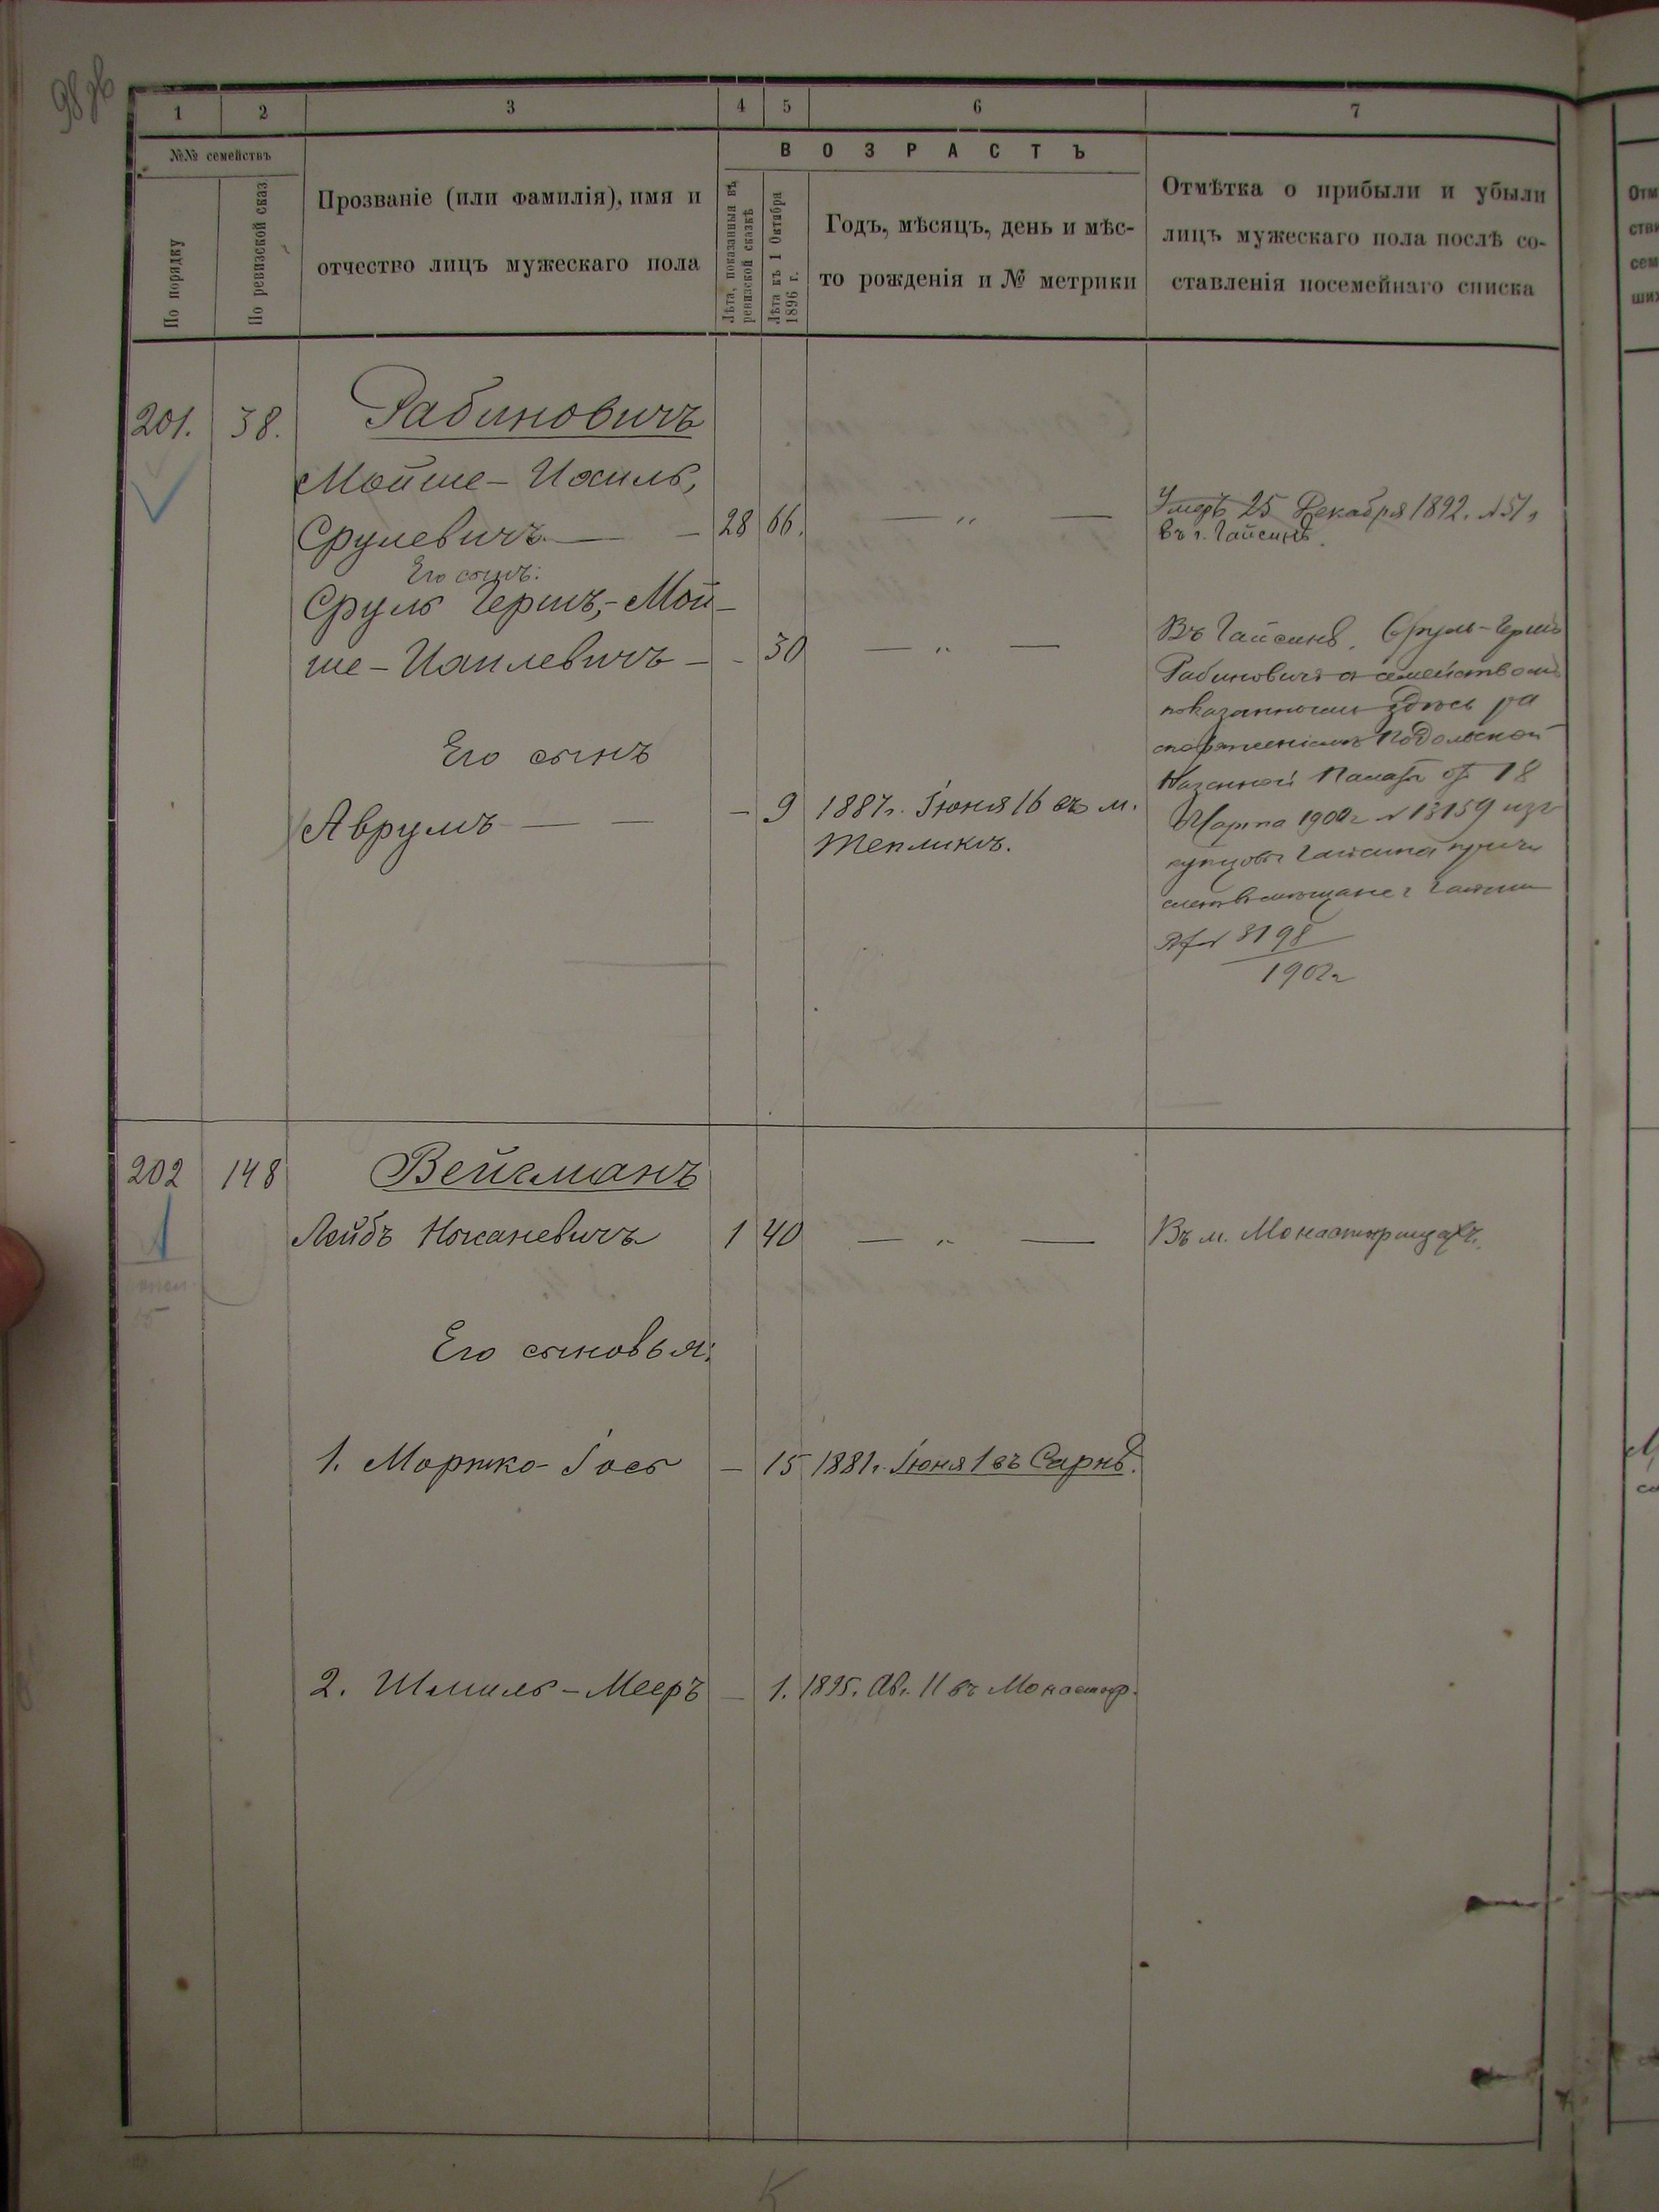 98 об
1 2 3 4 5 6 7
№№ семействъ
По порядку
По ревизской сказ
Прозваніе (или фамилія), имя и
отчество лицъ мужескаго пола
ВОЗРАСТЪ
Лѣта, показанныя въ
ревизской сказкѣ
Лѣта къ 1 Октября
1896 г.
Годъ, мѣсяцъ, день и мѣс-
то рожденія и № метрики
Отмѣтка о прибыли и убыли
лицъ мужескаго пола послѣ со-
ставленія посемейнаго списка
201. 38. Рабиновичъ
Мойше-Иосиль,
Срулевичъ — - 28 66. — " — Умеръ 25 Декабря 1892. №51,
въ г. Гайсинѣ.
Его сынъ:
Сруль Гершъ,-Мой-
ше-Иоилевичъ - - 30 — " —
Въ Гайсинѣ. Сруль-Гершъ
Рабиновичъ съ семействомъ
показаннымъ здѣсь ра
споряженіемъ Подольской
Казенной Палаты от 18
Марта 1902 г № 13159 изъ
купцовъ Гайсина причи
сленъ въ мѣщане г Гайсина
№ 3198
1902 г
Его сынъ
Аврумъ — — - 9 1887 г. Іюня 16 въ м.
Тепликѣ.
202 148 Вейсманъ
Лейбъ Ноханевичъ 1 40 — " — Въ м. Монастырищахъ.
Его сыновья:
1. Мортко-Іось - 15 1881 г. Іюня 1 въ Сарнѣ.
2. Шмиль-Мееръ - 1. 1895. Ав. 11 въ Монастыр.